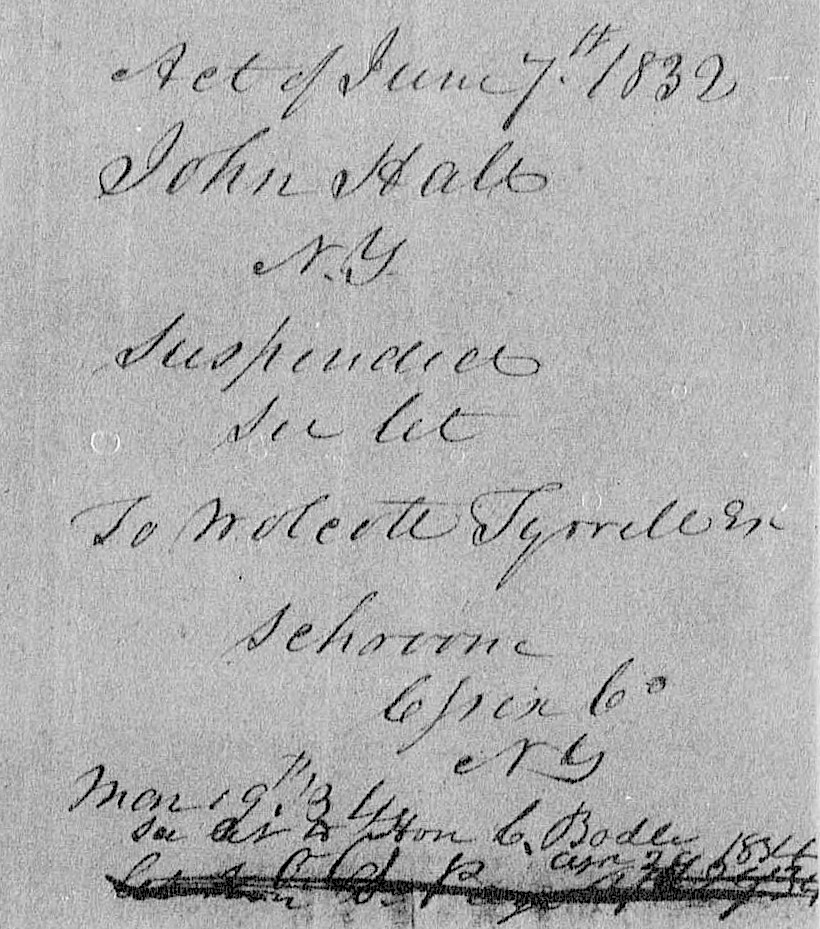 Act of June 7.th 1832
John Halt
N.Y.
Suspended
See let
To Wolcott Tyrrell Esr
Schroone
Essex Co
N Y
Mar 19th 34
see let to Hon C. Bodle
1834